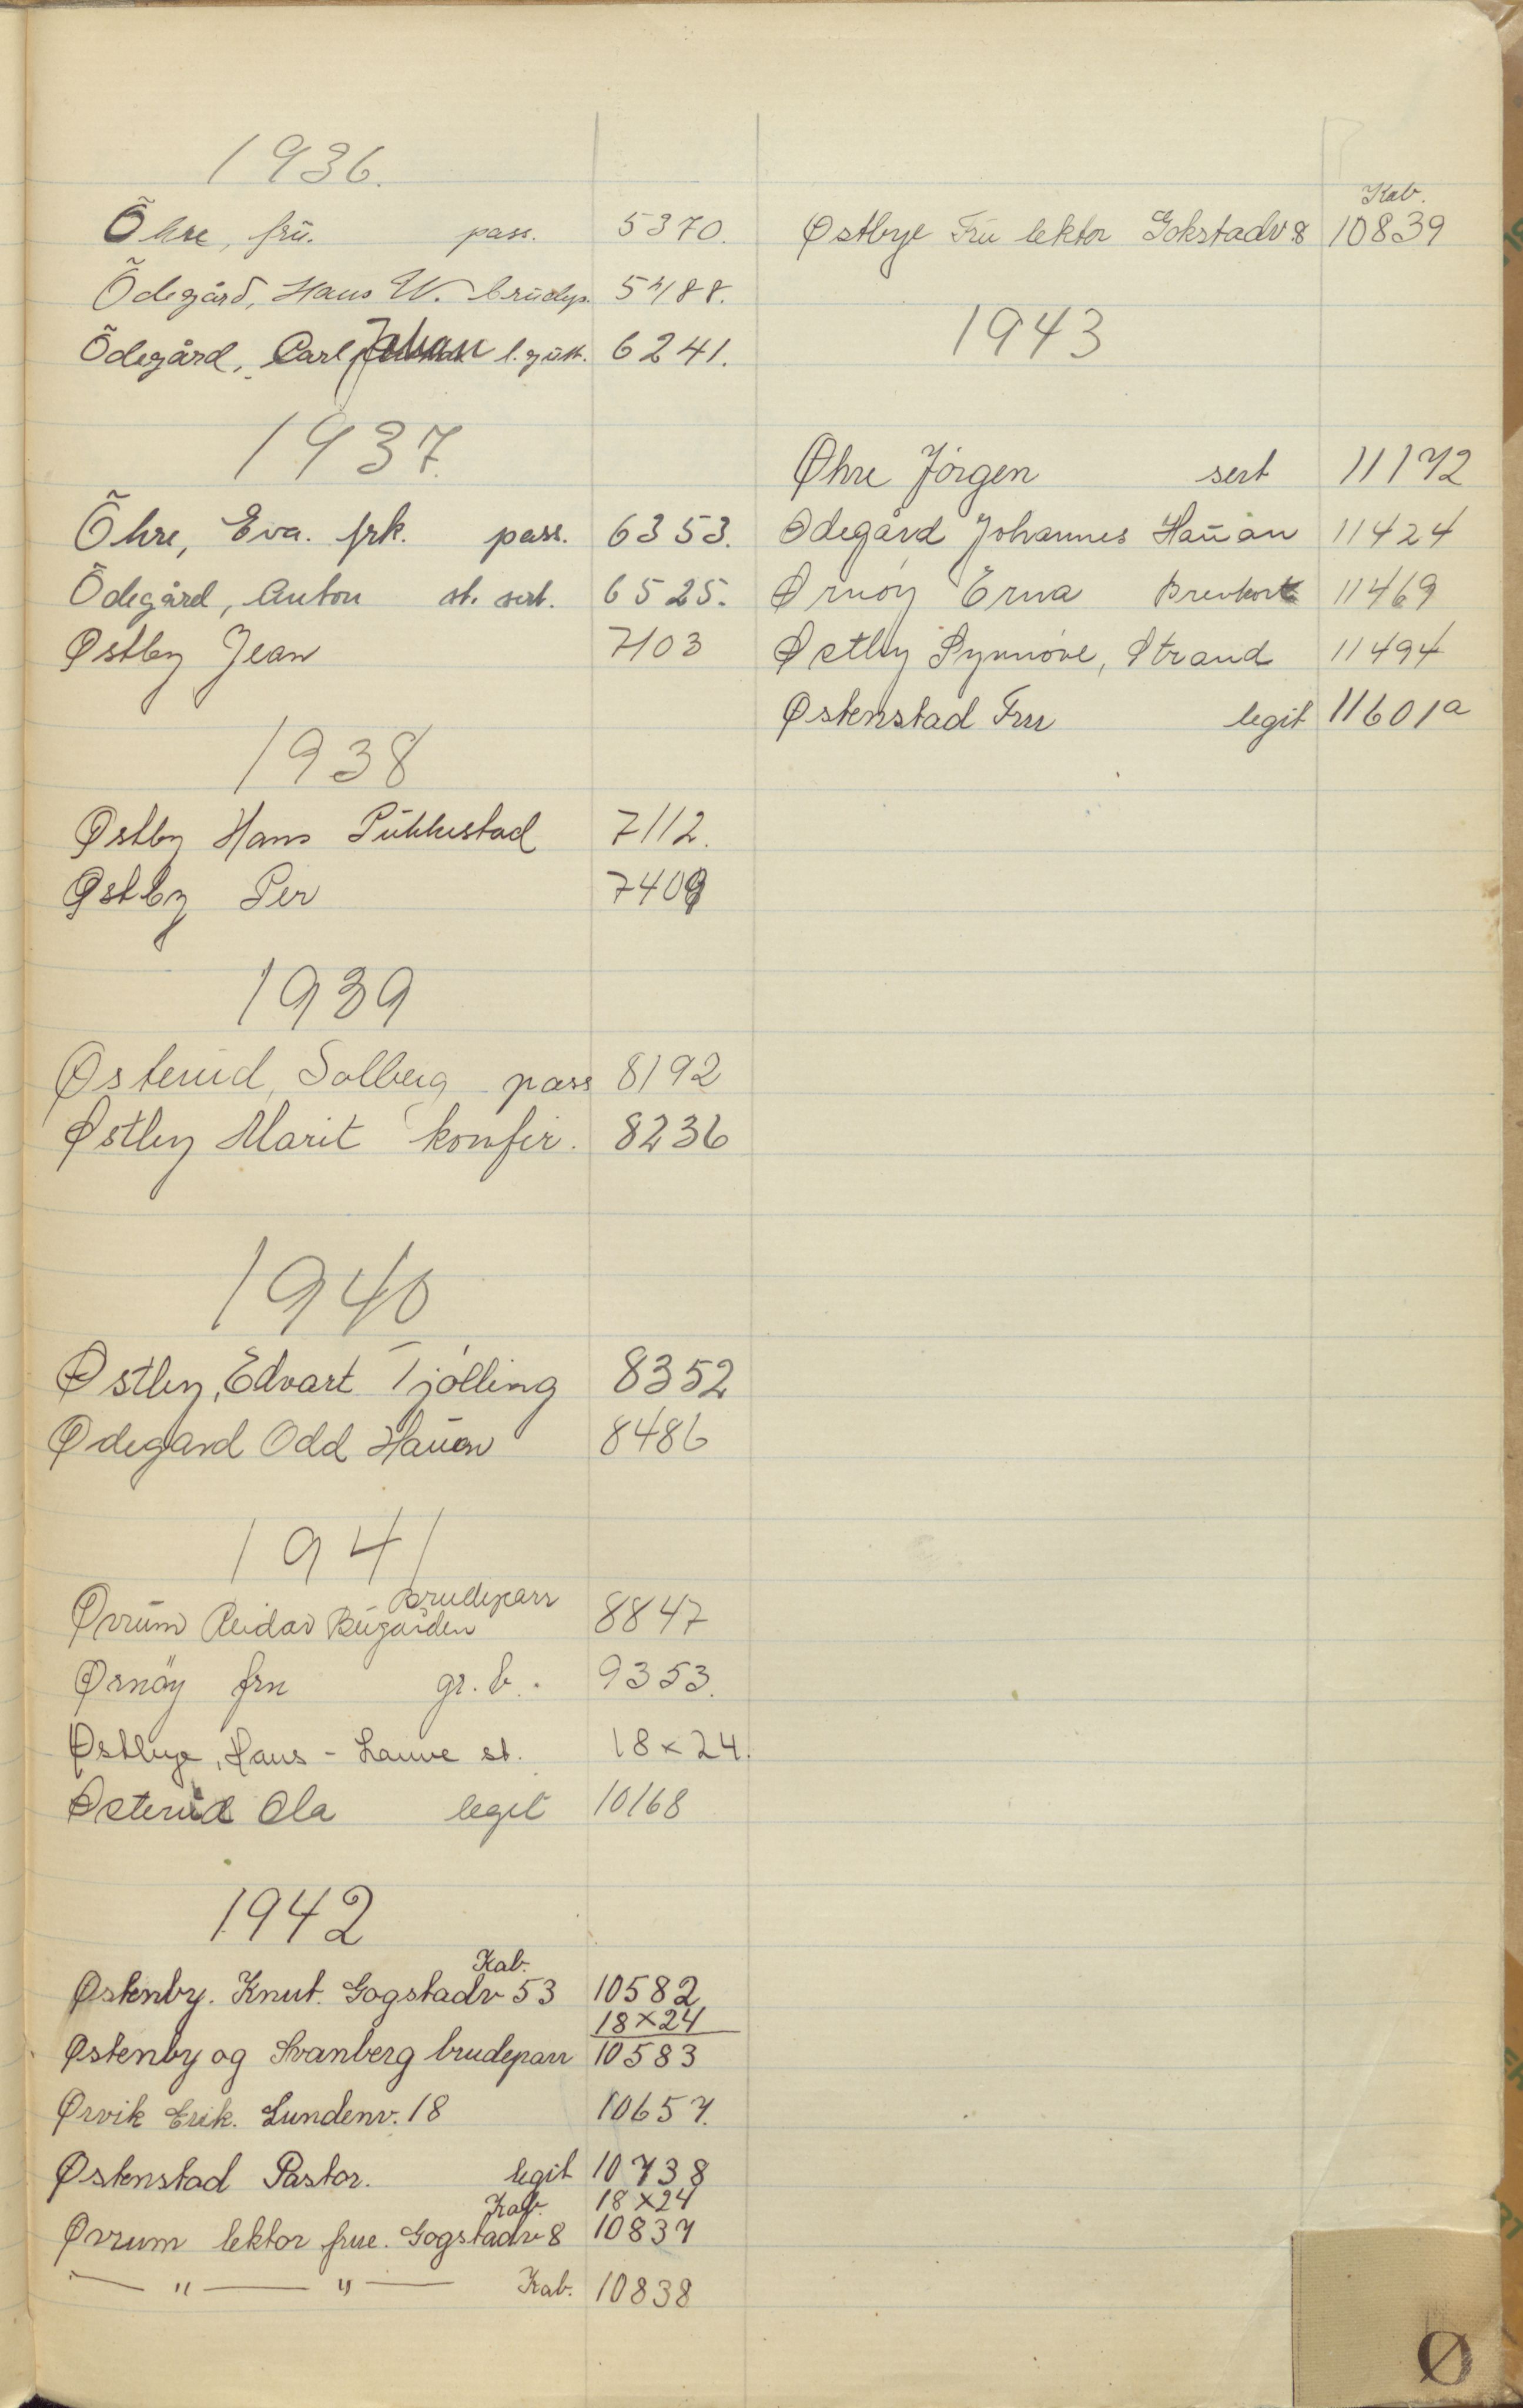 1936.
Õhre, frū. pass. 5370.
Õdegård, Hans W. brūdep. 5788.
Õdegård, Carl Johan l. gūtt. 6241.
1937.
Õhre, Eva. frk. pass. 6353.
Õdegård, Anton st. sert. 6525.
Østby Jean 7103
1938
Østby Hans Pūkkestad 7112.
Østby Per 7409
1939
Østerud, Solberg pass 8192
Østby Marit konfir. 8236
1940
Østby, Edvart Tjølling 8352
Ødegard Odd Haūan 8486
1941
Brudeparr
Ørrūm Reidar Būgården 8847
Ørnöy fru gr. b. 9353.
Østbye, Hans - Lauve st. 18×24.
Østerud Ola legit 10168
1942
Kab.
Østenby. Knut. Gogstadv 53 10582
18×24
Østenby og Svanberg brudeparr 10583
Ørvik Erik. Lundenv. 18 10657.
Østenstad Pastor. legit 10738
Kab. 18×24
Ørrum lektor frue. Gogstadv 8 10837
— " — " — Kab. 10838
Kab.
Østbye Frū lektor Gokstadv 8 10839
1943
Øhre Jørgen sert 11172
Ødegård Johannes Haūan 11424
Ørnøy Erna Brevkort 11469
Østby Synnøve, Strand 11494
Østenstad Fru legit 11601a
Ø